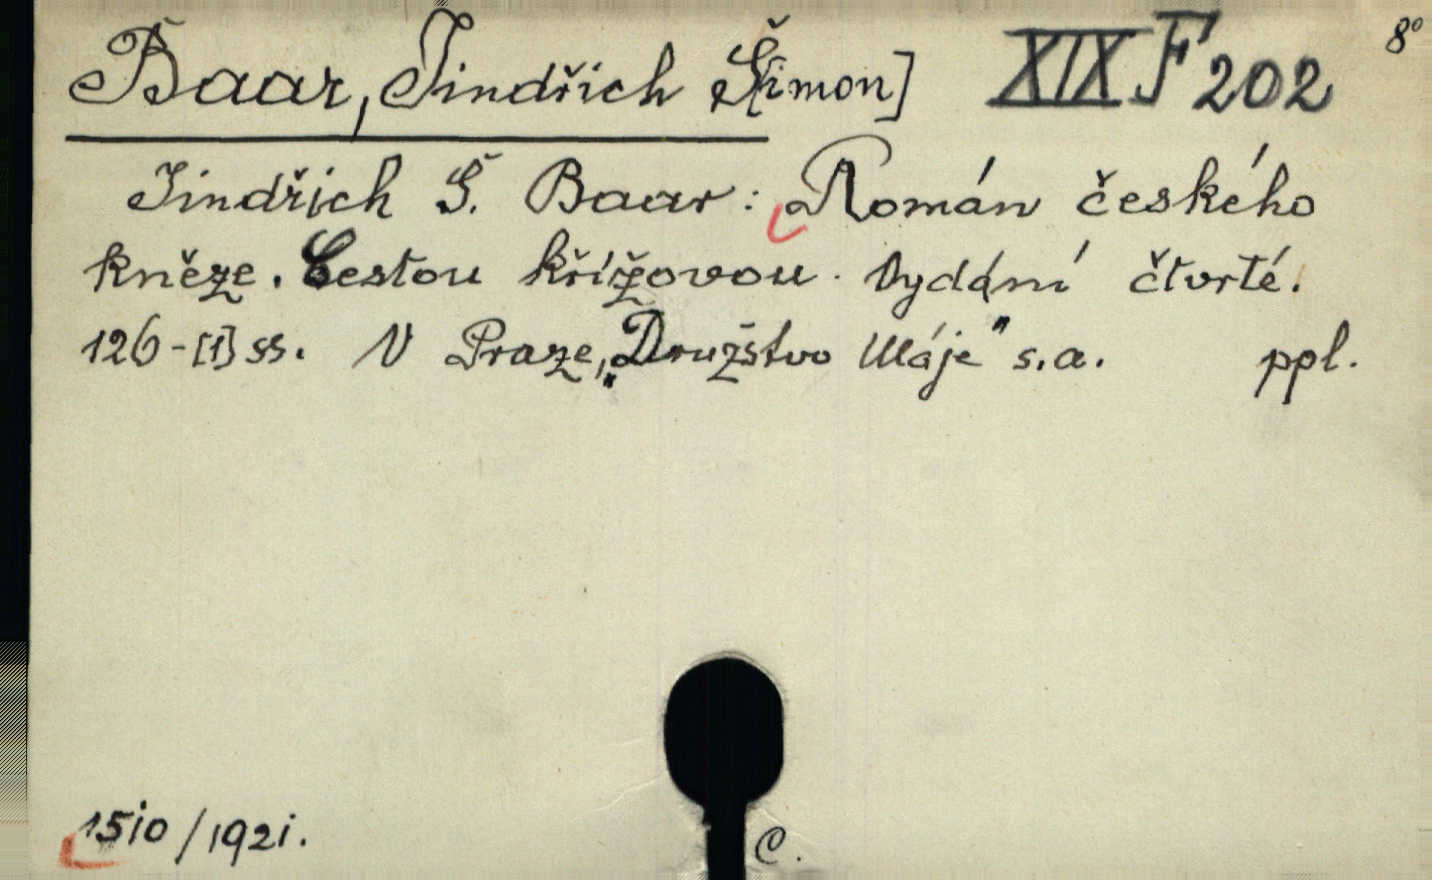 Baar, Jindřich Š[imon] XIX F 202 8°
Jindřich Š. Baar: Román českého
kněze. Cestou křížovou. Vydání čtvrté.
126-[1] ss. V Praze, „Družstvo Máje" s.a. ppl.
1510/1921.
C.